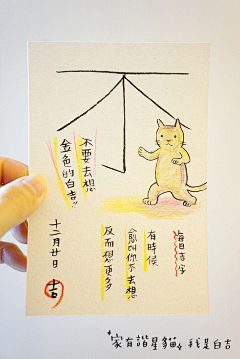 不要去想
金色的白吉!!
每日吉字
有時候
愈叫你不去想
反而想更多
十二月廿日
吉
家有諧星貓,我是白吉